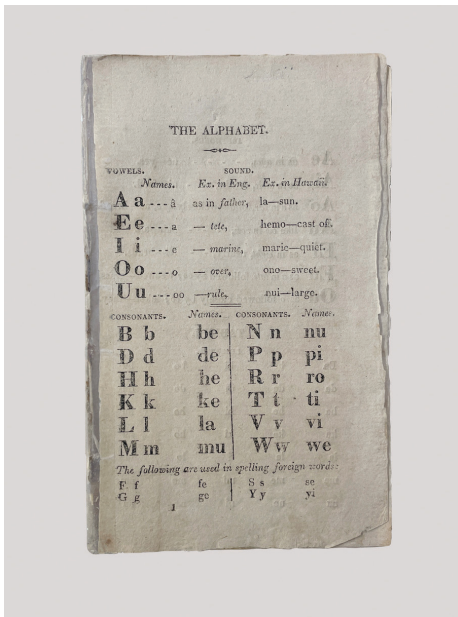 THE ALPHABET.
VOWELS. SOUND.
Names. Ex. in Eng. Ex. in Hawaii.
A a - - - â as in father, la—sun.
E e - - - a — tete, hemo—cast off.
I i - - - e — marine, marie—quiet.
O o - - - o — over, ono—sweet.
U u - - - oo —rule, nui—large.
CONSONANTS. Names. CONSONANTS. Names.
B b be N n nu
D d de P p pi
H h he R r ro
K k ke T t ti
L l la V v vi
M m mu W w we
The following are used in spelling foreign words:
F f fe S s se
G g ge Y y yi
1